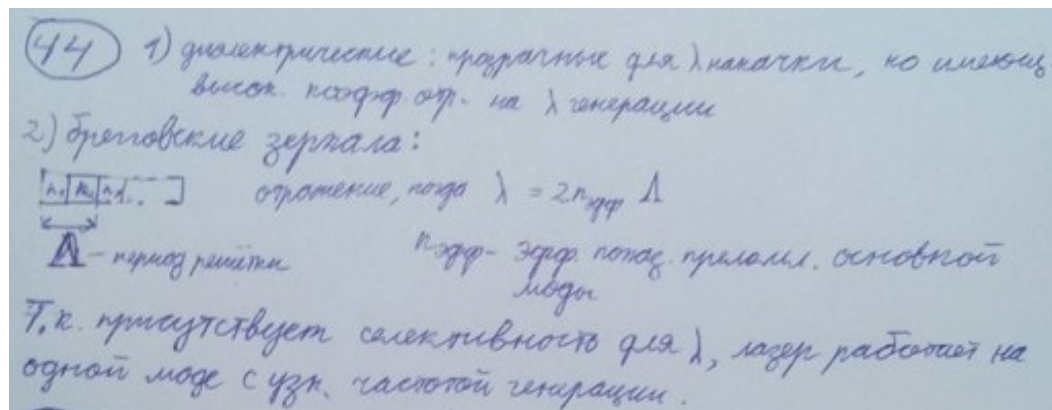 44 1) диэлектрические: прозрачные для λ накачки, но имеющ.
высок. коэфф. отр. на λ генерации
2) брэгговские зеркала:
n₁ n₂ n₁ . . отражение, когда λ = 2nэфф Λ
Λ - период решётки nэфф - эфф. показ. преломл. основной
моды
Т.к. присутствует селективность для λ, лазер работает на
одной моде с узк. частотой генерации.